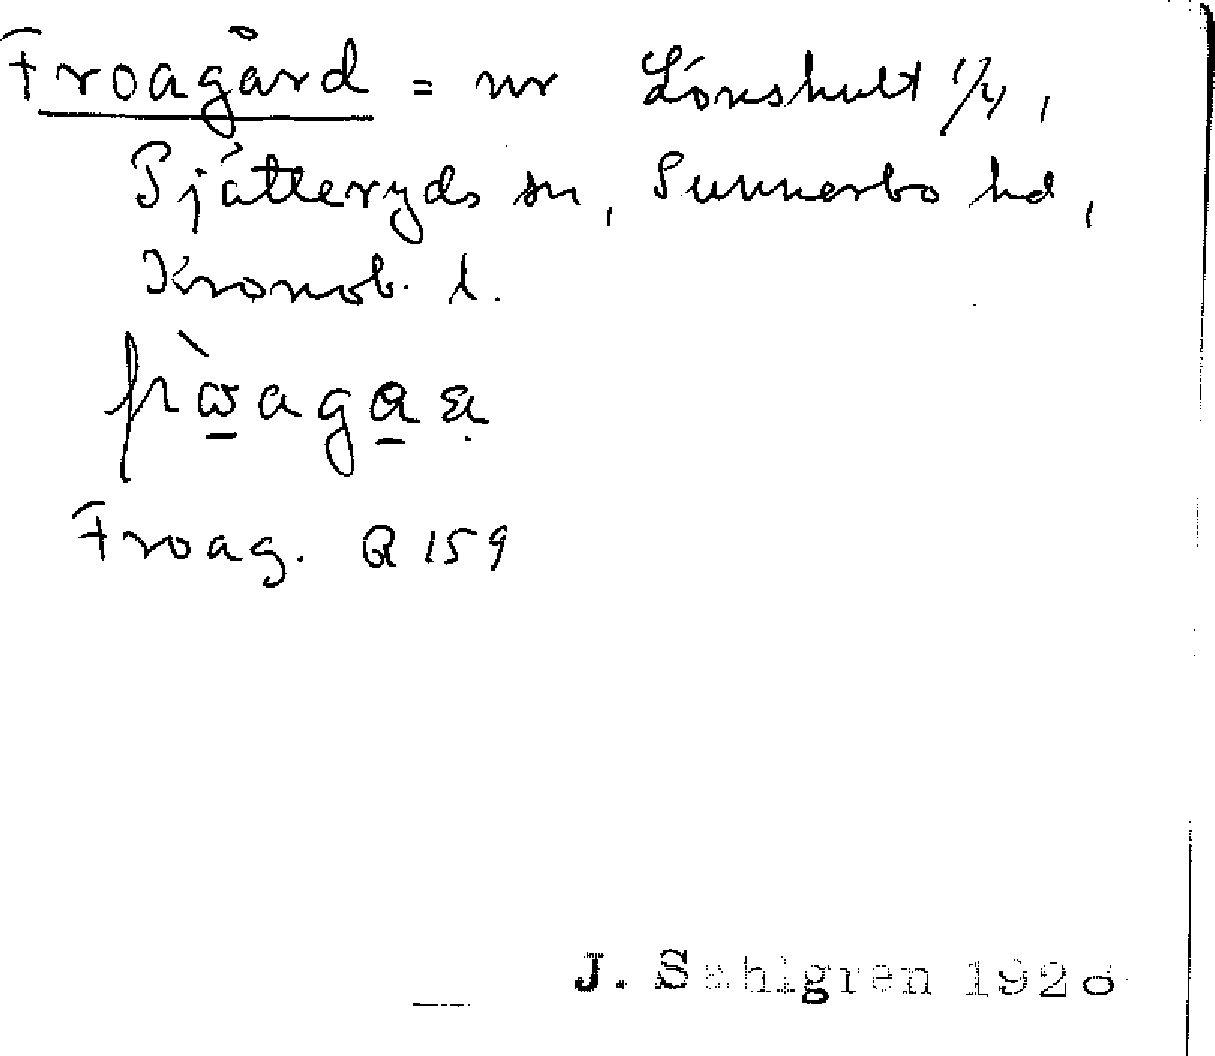 Froagård = nr Lönshult 1/4,
Pjätteryds sn, Sunnerbo hd,
Kronob. l.
Froag. Q 159
J. Sahlgren